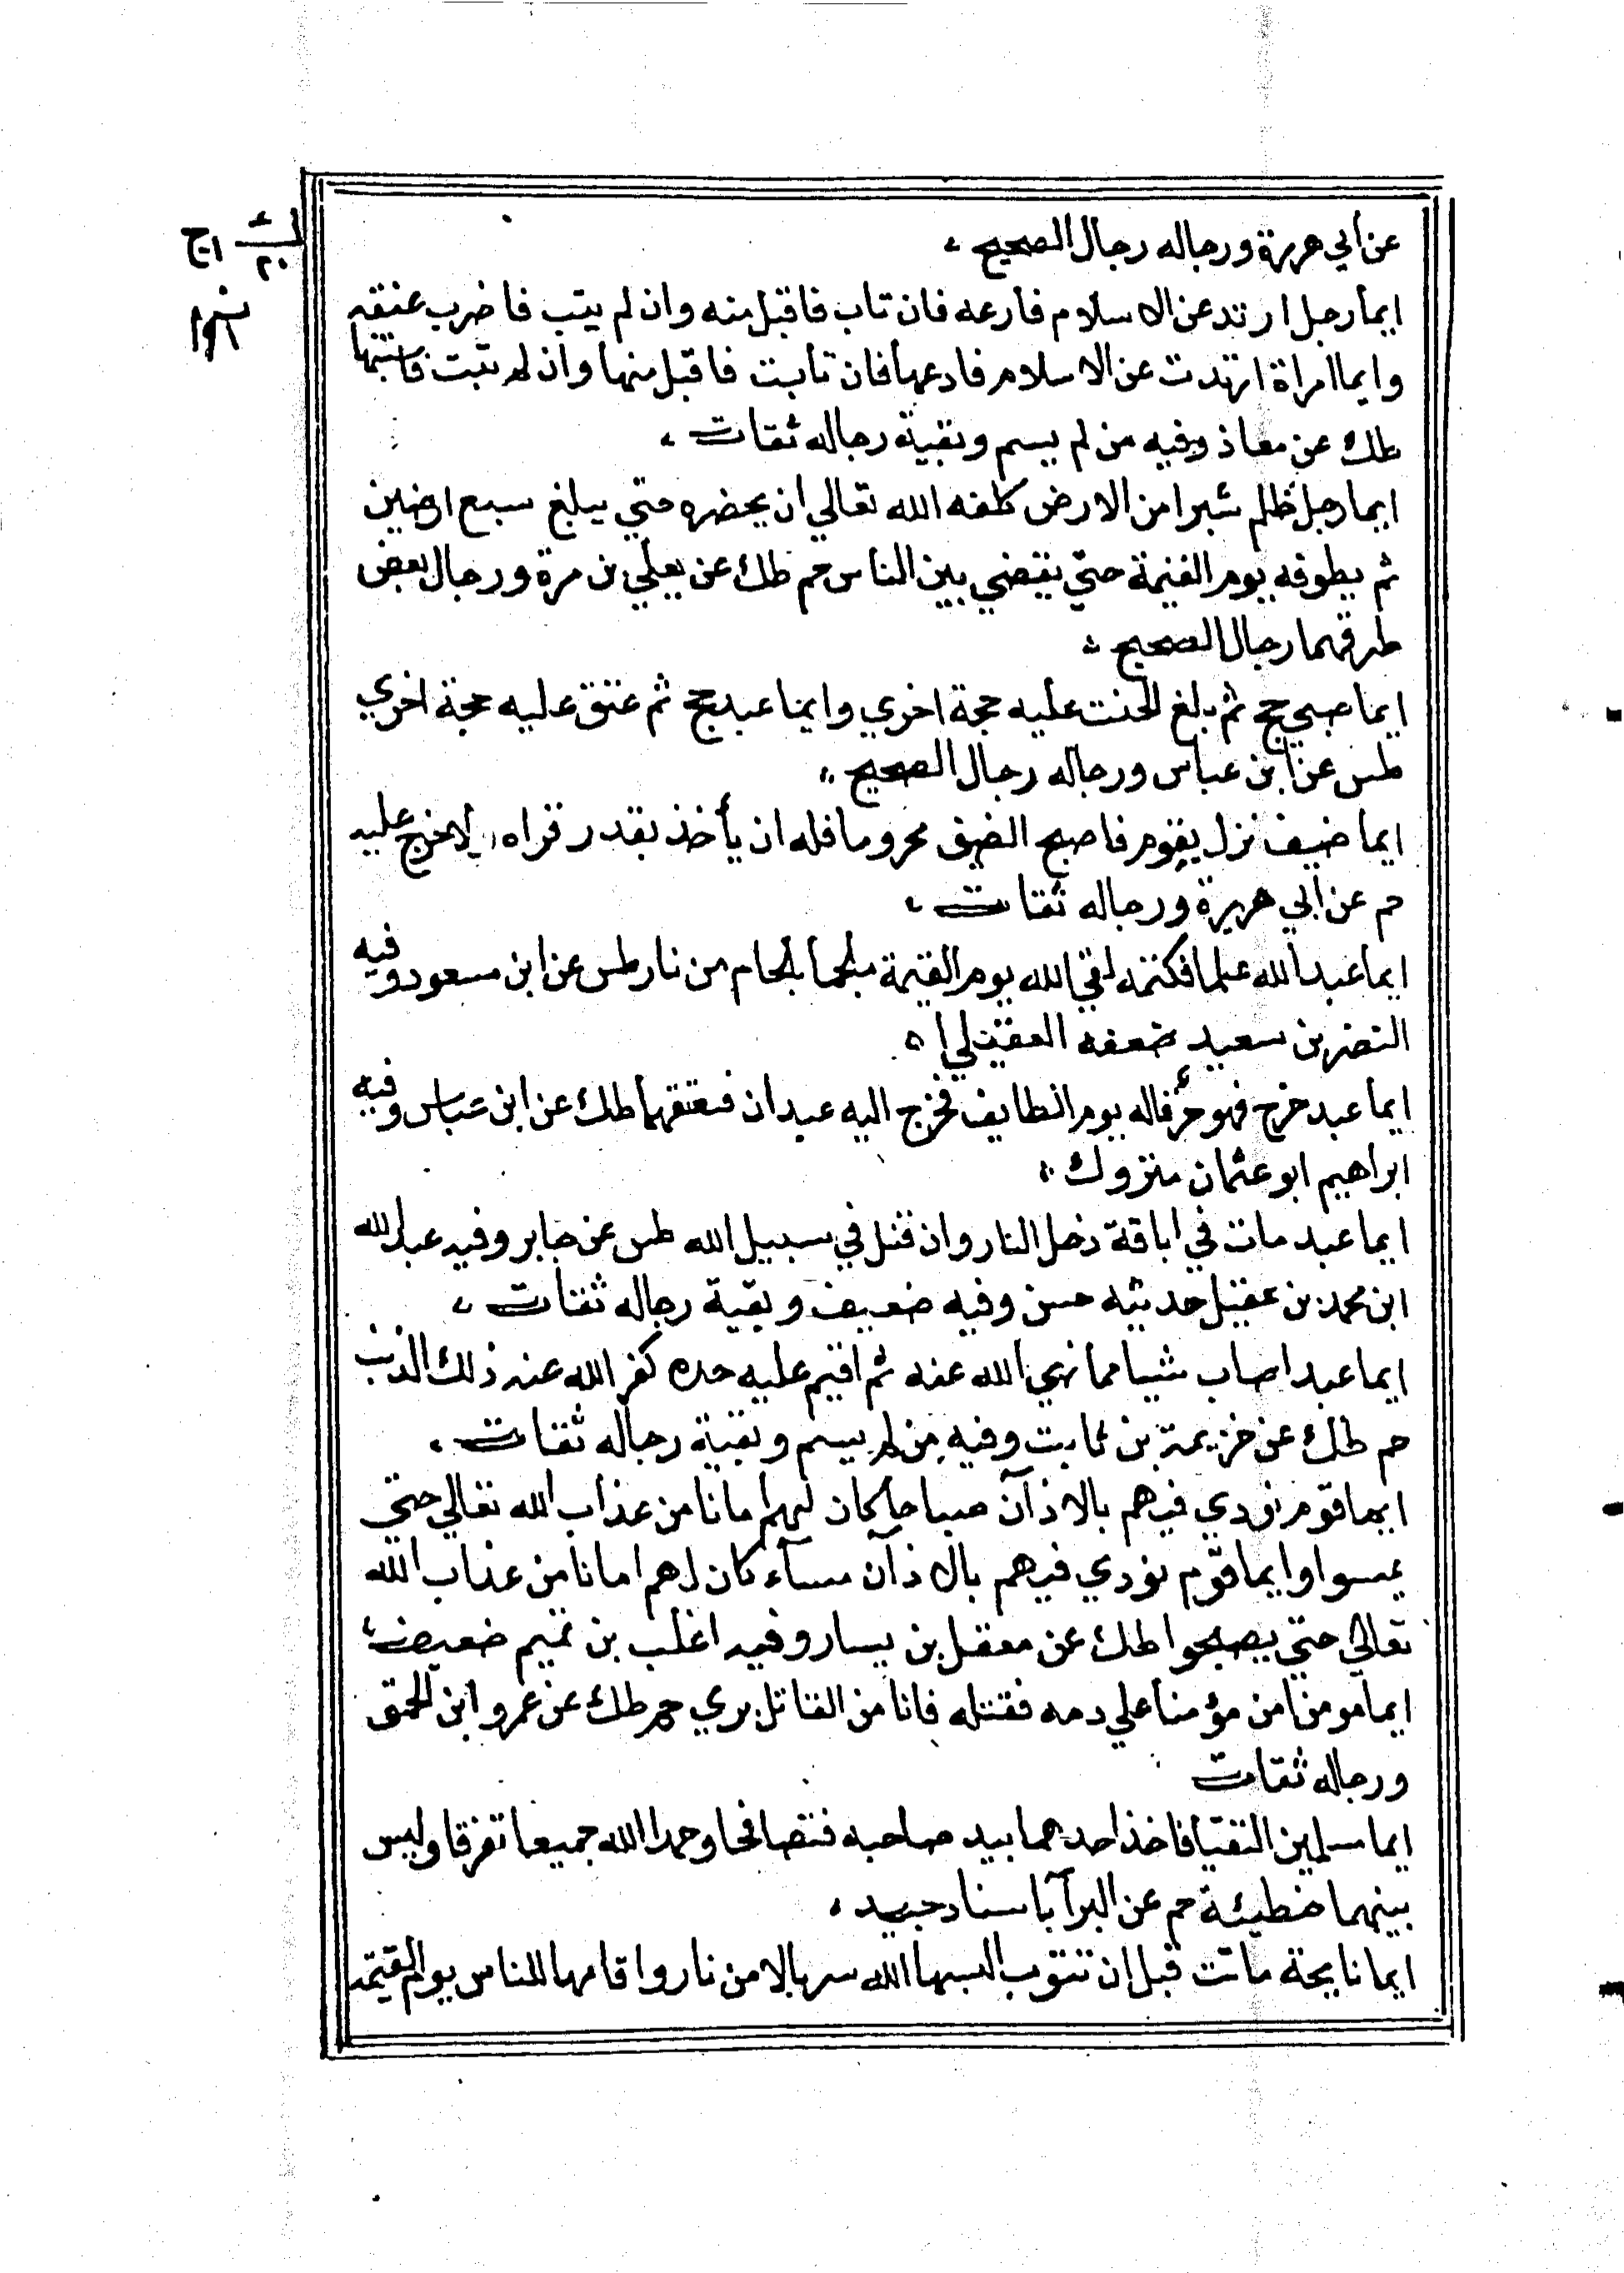 عن ابي هريرة ورجاله رجال الصحيح
ايما رجل ارتد عن الاسلام فادعه فان تاب فاقبل منه وان لم يتب فاضرب عنقه
وايما امراة ارتدت عن الاسلام فادعها فان تابت فاقبل منها وان لم تتب فاستتبها
طك عن معاذ وفيه من لم يسم وبقية رجاله ثقات
ايما رجل ظلم شبرا من الارض كلفه الله تعالي ان يحضره حتي يبلغ سبع ارضين
ثم يطوفه يوم القيمة حتي يقضي بين الناس حم طك عن يعلي بن مرة ورجال بعض
طرقهما رجال الصحيح
ايما صبي حج ثم بلغ الحنث عليه حجة اخري وايما عبد حج ثم عتق عليه حجة اخري
طس عن ابن عباس ورجاله رجال الصحيح
ايما ضيف نزل بقوم فاصبح الضيف محروما فله ان يأخذ بقدر قراه لا حرج عليه
حم عن ابي هريرة ورجاله ثقات
ايما عبد الله علما فكتمه لقي الله يوم القيمة ملجما بلجام من نار طس عن ابن مسعود وفيه
النضر بن سعيد ضعفه العقيلي
ايما عبد خرج فهو حر قاله يوم الطايف فخرج اليه عبدان فعتقهما طك عن ابن عباس وفيه
ابراهيم ابو عثمان متروك
ايما عبد مات في اباقة دخل النار وان قتل في سبيل الله طس عن جابر وفيه عبد الله
ابن محمد بن عقيل حديثه حسن وفيه ضعيف وبقية رجاله ثقات
ايما عبد اصاب شيا مما نهي الله عنه ثم اقيم عليه حده كفر الله عنه ذلك الذنب
حم طك عن خزيمة بن ثابت وفيه من لم يسم وبقية رجاله ثقات
ايما قوم نودي فيهم بالاذآن صباحا كان لهم امانا من عذاب الله تعالي حتي
يمسوا وايما قوم نودي فيهم بالاذآن مسآء كان لهم امانا من عذاب الله
تعالي حتي يصبحوا طك عن معقل بن يسار وفيه اغلب بن تميم ضعيف
ايما مومن امن مؤمنا علي دمه فقتله فانا من القاتل بري حم طك عن عمرو ابن الحمق
ورجاله ثقات
ايما مسلمين التقيا فاخذ احدهما بيد صاحبه فتصافحا وحمدا الله جميعا تفرقا وليس
بينهما خطيئة حم عن البرآ باسناد جيد
ايما نايحة ماتت قبل ان تتوب البسها الله سربالا من نار واقامها للناس يوم القيمة